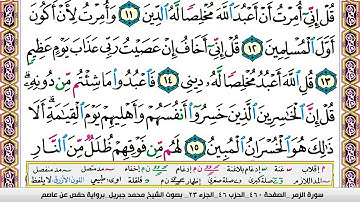 قُلْ إِنِّي أُمِرْتُ أَنْ أَعْبُدَ اللَّهَ مُخْلِصًا لَهُ الدِّينَ ١١ وَأُمِرْتُ لِأَنْ أَكُونَ
أَوَّلَ الْمُسْلِمِينَ ١٢ قُلْ إِنِّي أَخَافُ إِنْ عَصَيْتُ رَبِّي عَذَابَ يَوْمٍ عَظِيمٍ
١٣ قُلِ اللَّهَ أَعْبُدُ مُخْلِصًا لَهُ دِينِي ١٤ فَاعْبُدُوا مَا شِئْتُمْ مِنْ دُونِهِ
قُلْ إِنَّ الْخَاسِرِينَ الَّذِينَ خَسِرُوا أَنْفُسَهُمْ وَأَهْلِيهِمْ يَوْمَ الْقِيَامَةِ أَلَا
ذَلِكَ هُوَ الْخُسْرَانُ الْمُبِينُ ١٥ لَهُمْ مِنْ فَوْقِهِمْ ظُلَلٌ مِنَ النَّارِ
سورة الزمر الصفحة ٤٦٠ الحزب ٤٦ الجزء ٢٣ بصوت الشيخ محمد جبريل برواية حفص عن عاصم